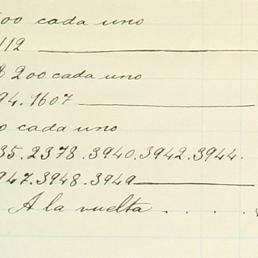 00 cada uno
112
$ 200 cada uno
94.1607
0 cada uno
35.2378.3940.3942.3944.
947.3948.3949
A la vuelta . . . .